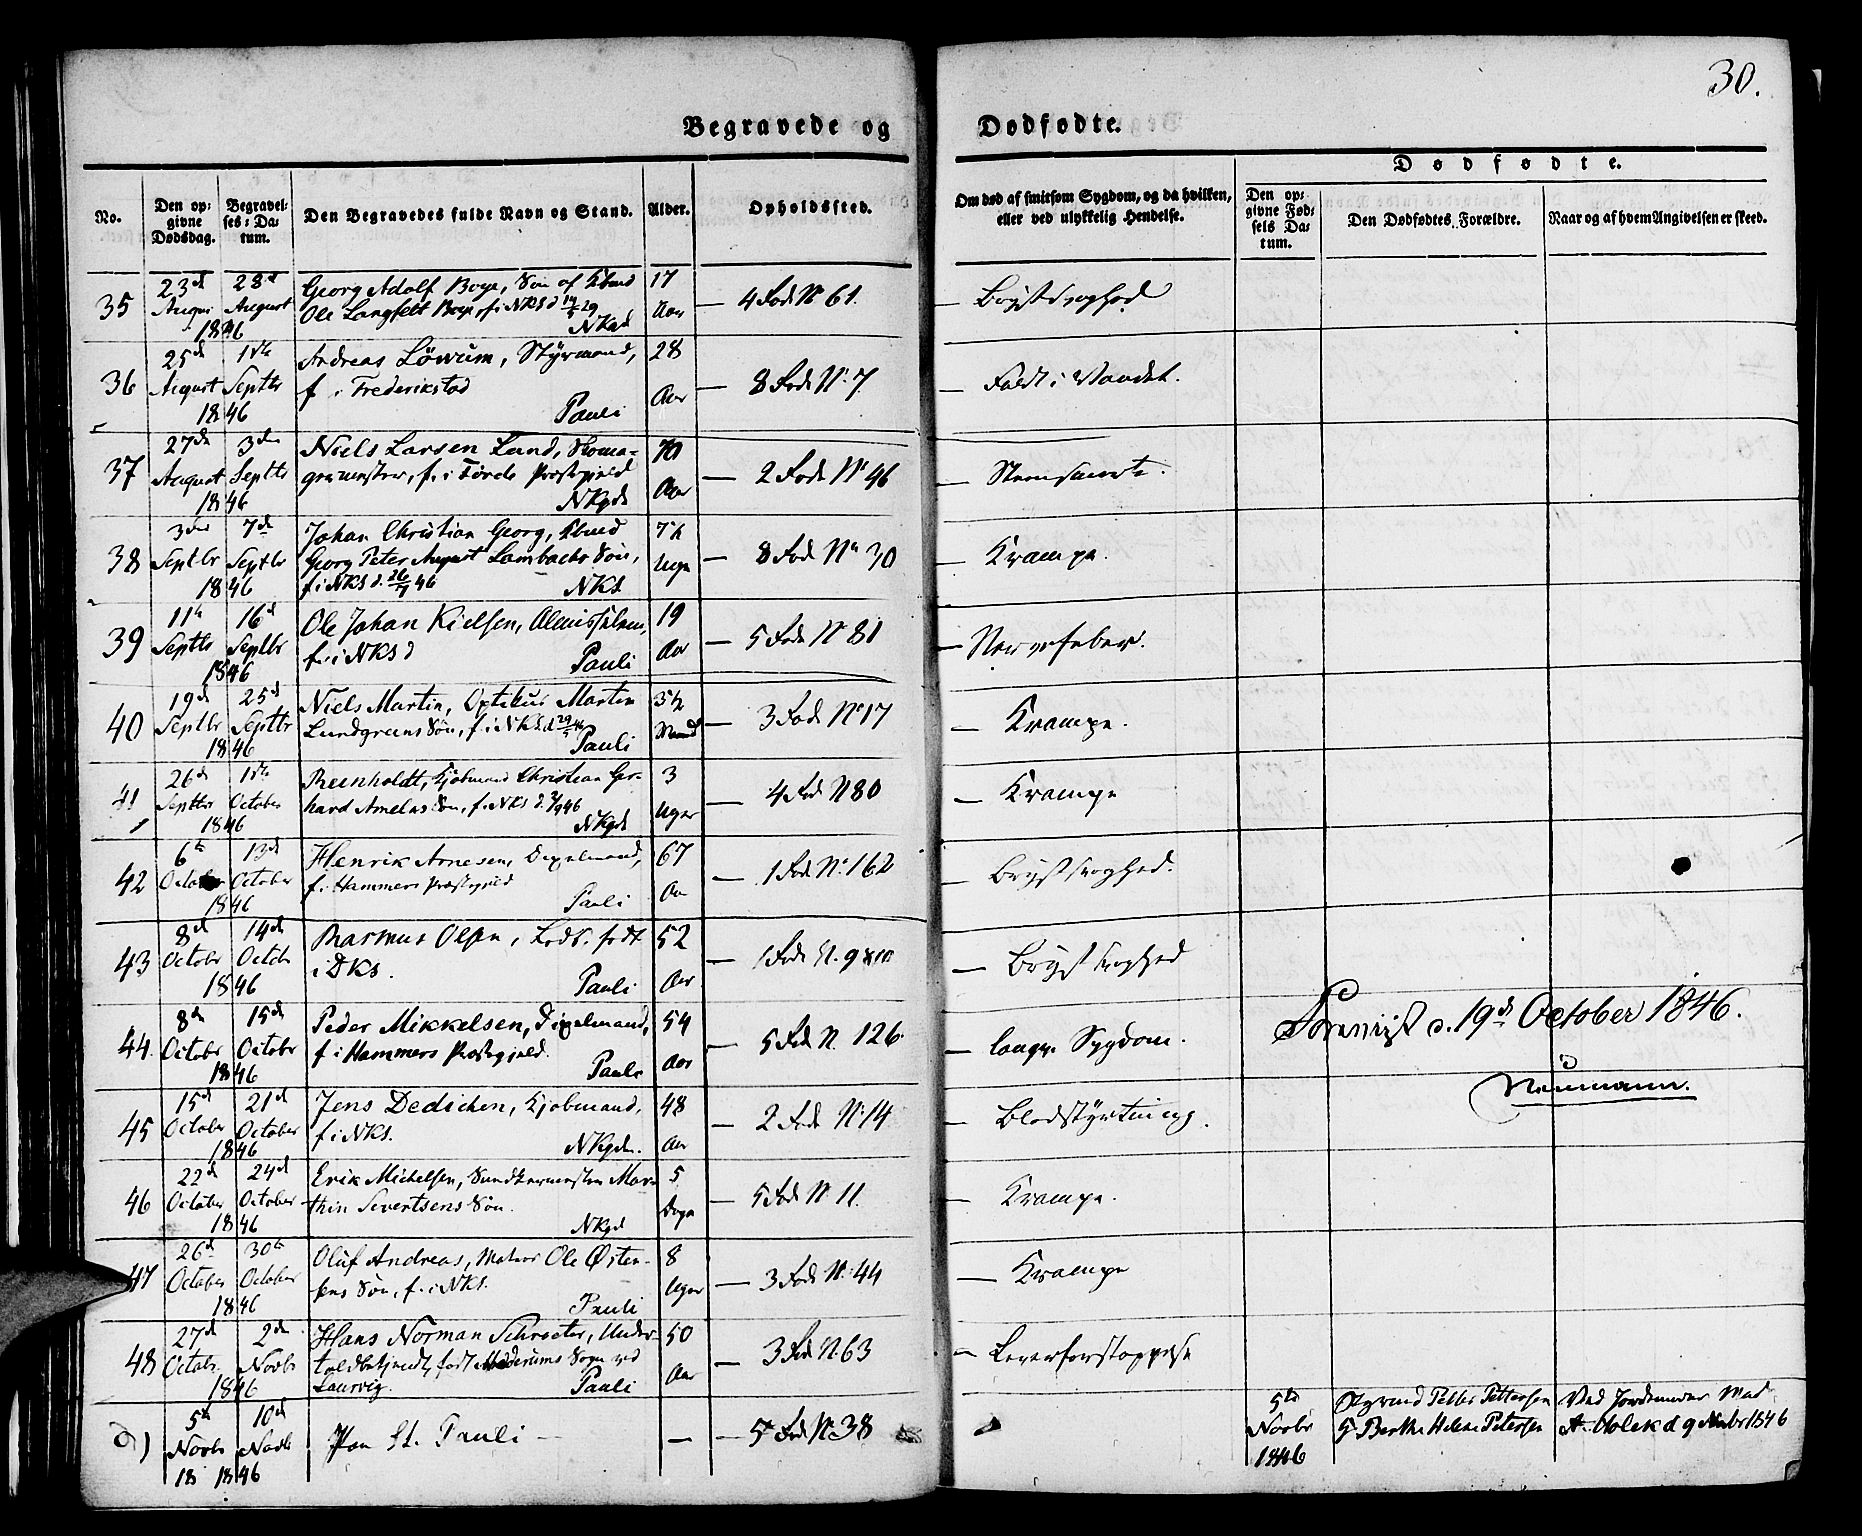 30.
Begravede og Dødfødte.
No. Den opgivne Dødsdag. Begravelses-Datum. Den Begravedes fulde Navn og Stand. Alder. Opholdssted. Om død af smitsom Sygdom, og da hvilken, eller ved ulykkelig Hendelse. Dødfødte. Den opgivne Fødsels Datum. Den Dødfødtes Forældre. Naar og af hvem Angivelsen er skeed.
35 23d 28d Georg Adolf Boye, Søn af 17
August Ole Langfeldt Boye, f. i NKS d Aar — 4 Rode No 61. — Brystsvaghed
1846 NKgd
36 25d 1ste Andreas Löwum, Styrmand, 28
August Septbr f. i Frederikstad Aar — 8 Rode No. 7 — Faldt i Vandet.
1846 Pauli
37 27de 3die Niels Larsen Lund, Skoma- 70
August Septbr germester, f. i Førde Præstegjeld Aar — 2 Rode No 46
1846 NKgd
38 3die 7de Johan Christian Georg, 7½
Septbr Septbr Georg Peter August Lambachs Søn, Uger — 8 Rode No 30 — Krampe.
1846 f. i NKS d. 46 NKS
39 11te 16d Ole Johan Kielsen, 19
Septbr Septbr f. i NKS d Aar — 5 Rode No 81 — Nervefeber.
1846 Pauli
40 19d 25d Niels Martin, Optikus Martin 3½
Septbr Septbr Lundgreens Søn, f. i NKS d Maaned — 3 Rode No 17 — Krampe.
1846 Pauli
41 26d 1ste Reinholdt, Kjøbmand Christian Ger- 3
Septbr October hard Amelns Søn, f. i NKS d. 46 Uger — 4 Rode No 80 — Krampe
1846 NKgd
42 6te 13d Henrik Arnesen, 67
October October f. i Hammers Præstegjeld Aar — 1 Rode No. 162 — Brystsvaghed.
1846 Pauli
43 8d 14d Rasmus Olsen, Lods. født 52
October Octobr i DKS. Aar — 1 Rode No. 9 — Brystsvaghed
1846 Pauli
44. 8de 15d Peder Mikkelsen, 54
October October f. i Hammers Præstegjeld. Aar — 5 Rode No. 126. — langv. Sygdom.
1846 Pauli
d. 19d October 1846.
Neumann.
45 15d 21d Jens Dedichen, Kjøbmand, 48
October October f. i NKS. Aar — 2 Rode No. 14 — Blodstyrtning.
1846 NKgd.
46 22d 24d Erik Michelsen, Mar- 5
October October thin Sivertsens Søn. Dage — 5 Rode No. 11. — Krampe.
1846 NKgd
47 26d 30te Oluf Andreas, Ole Østen- 8
October October sens Søn, f. i NKS. Uger — 3 Rode No. 44 — Krampe
1846 Pauli
48 27d 2den Hans Norman Schrøeter, Under- 50
Octobr. Novbr toldbetjendt, født Sogn ved Aar — 3 Rode No. 63 — Leverforstoppelse
1846 Laurvig. Pauli
d) 5te 10d
Novbr Novbr Paa St. Pauli — — — 5 Rode No. 38
18 1846
5te Novbr 1846 Petter Pettersen
Berthe Helene Petersen
Ved Jordemoder Mad
A. Holck d 9 Novbr 1846